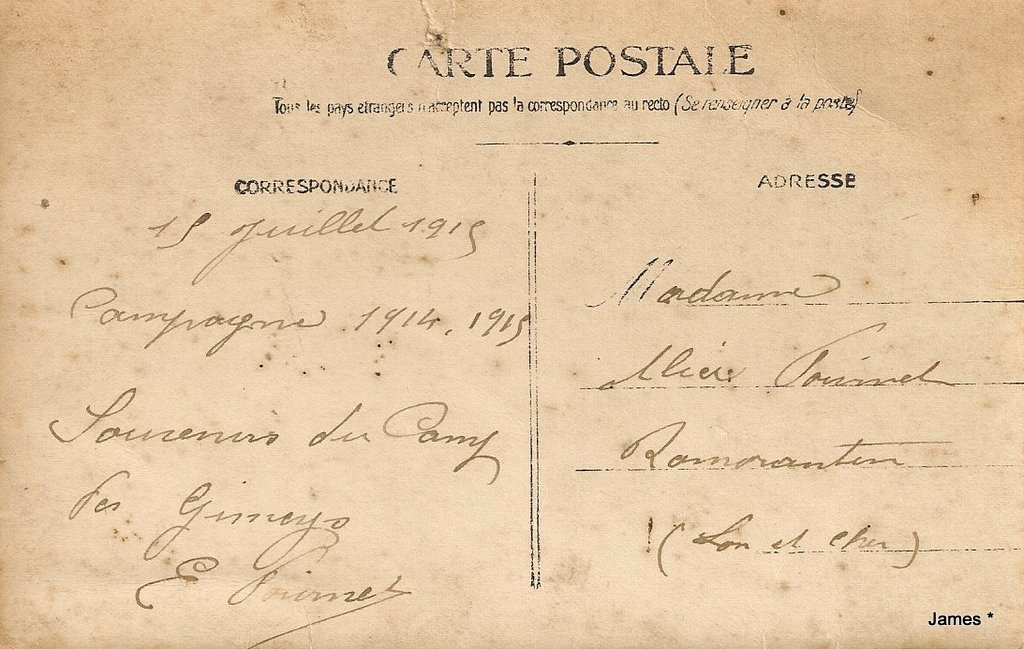 CARTE POSTALE
Tous les pays etrangers n'acceptent pas la correspondance au recto (Se renseigner à la poste)
CORRESPONDANCE
15 Juillet 1915
Campagne 1914.1915
Souvenirs du Camp
des
E Poirmet
ADRESSE
Madame
Poirmet
Romorantin
(Loir et Cher)
James *